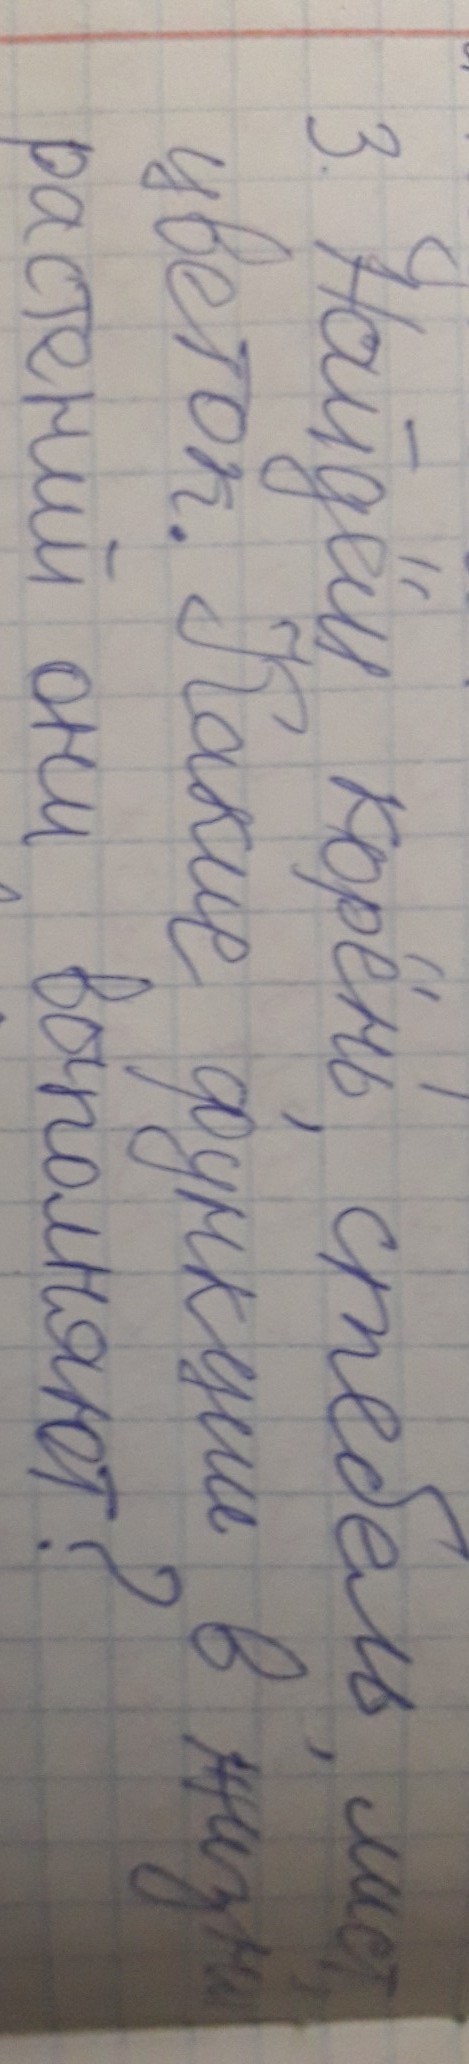 3. Найдём корёнь, стебель, лист,
цветок. Какие функции в жизни
растений они выполняют?